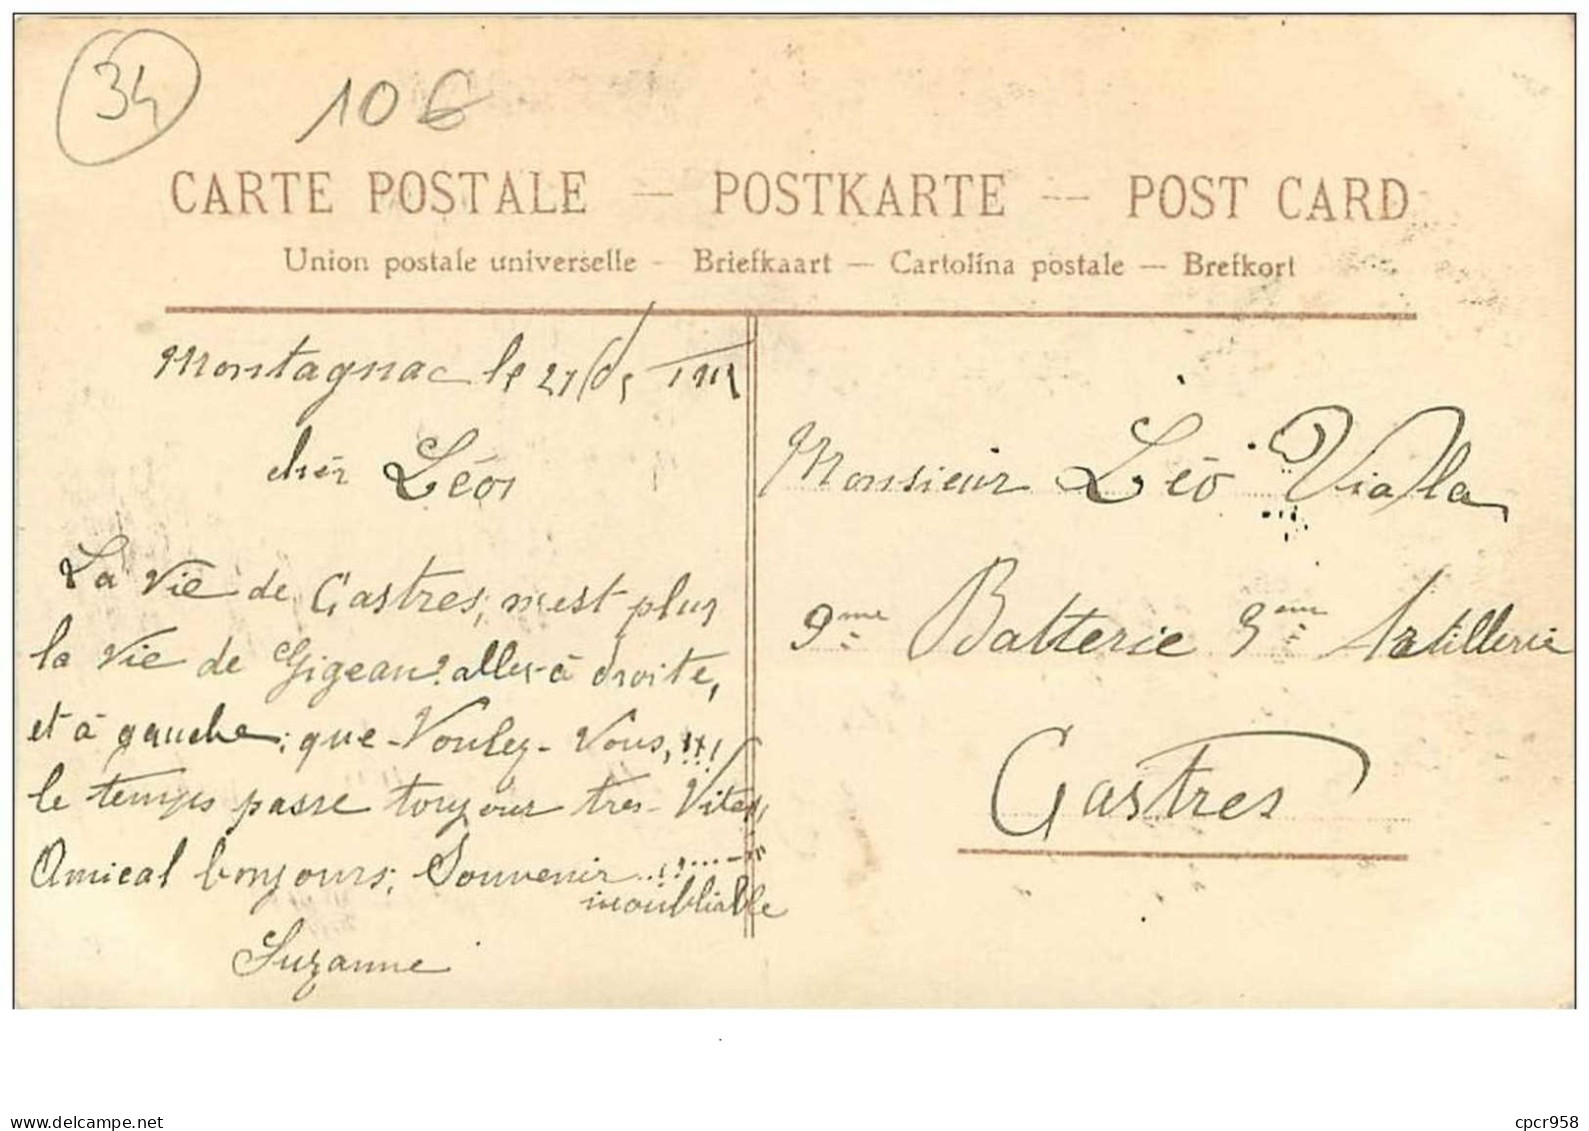 34
10€
CARTE POSTALE — POSTKARTE — POST CARD
Union postale universelle - Briefkaart — Cartolina postale — Brefkort
Montagnac le
cher Léo,
La vie de Castres, n'est plus
la vie de Gigean. allez-à droite,
et à gauche; que-Voulez-Vous, !!!
le temps passe toujours tres-Vite,
Amical bonjours; Souvenir ...!!....
inoubliable
Suzanne
Monsieur Léo Vialla
9me Batterie 3eme Artillerie
Castres
www.delcampe.net
cpcr958